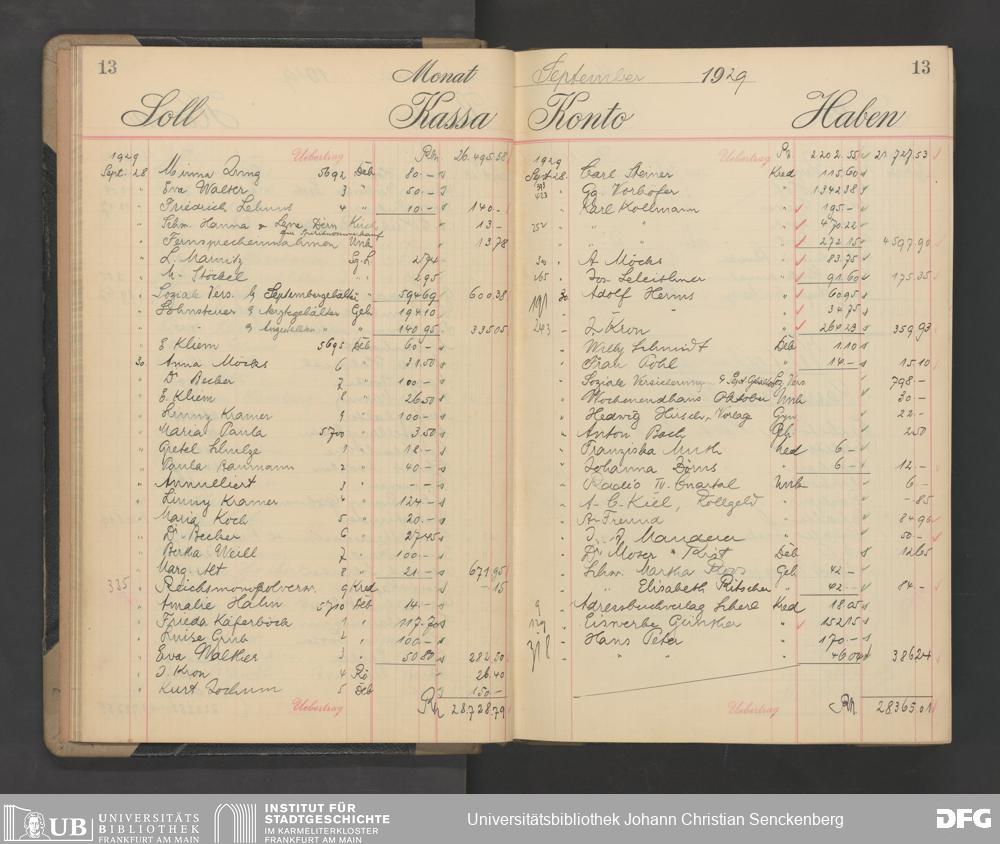 13 Monat
Soll Kassa
1929 Uebertrag Rm 26.495.58
Sept. 28 Minna 5692 Deb 80.-
Eva Walter 3 " 50.-
Friedrich 4 " 10.- 140.-
Schw. Hanna & Lena Dörn 13.-
Unk 13.78
L. Marnitz 2.74
Stöckel 2.95
Soziale Vers. Septembergehälter " 594.69 600.38
Lohnsteuer Arztegehälter Geh 194.10
" Angestellten " " 140.95 335.05
E. Kliem 5695 Deb 60.-
30. Anna Möcks 6 " 31.50
Dr. Becker 7 " 100.-
E. Kliem 8 " 26.50
Linny Kramer 9 " 100.-
Maria Paula 5700 " 3.50
Gretel Schulze 1 " 18.-
Paula Baumann 2 " 40.-
Annulliert 3 " - -
Linny Kramer 4 " 124.-
Maria Koch 5 " 20.-
Dr. Becker 6 " 27.45
Berta Weill 7 " 100.-
Marg. Alt 8 " 21.- 671.95
335 9 Kred -.15
Amalie Hahn 5710 Deb 14.-
Frieda Käferböck 1 " 117.70
Luise Grub 2 " 100.-
Eva Walther 3 " 50.80 282.50
J. Kron 4 26.40
Kurt Jochum 5 Deb 150.-
Uebertrag Rm 28.728.79
September 1929 13
Konto Haben
1929 Uebertrag Rm 2202.55 21.727.53
Sept. 28 Carl Sterner Kred 115.60
Gg. Vorhofer " 1342.38
Karl Kollmann " 195.-
252 " " 470.20
" " 272.15 4597.90
A. Möcks " 83.75
265 Jos. " 91.60 175.35
191 30 Adolf Herms " 60.95
" " 34.75
243 J. Kron " 264.23 359.93
Willy Schmidt Deb 1.10
Frau Pohl " 14.- 15.10
Soziale Versicherung Vers 798.-
Wochenendhaus Oktober Unk 30.-
Hedwig Hirsch, 22.-
Anton Bach 2.50
Franziska Muth Kred 6.-
Johanna Döms " 6.- 12.-
Radio IV. Quartal Unk 6.-
A. C. Kiel, Rollgeld " -.85
A. Freund " 84.96
" 50.-
Dr. Moser Deb 12.65
Schw. Martha Geh 42.-
" Elisabeth Ritscher " 42.- 84.-
9 Adressbuchverlag Scherl Kred 18.05
129 Eiswerke Günther " 152.15
318 Hans Peter " 170.-
" " 46.04 386.24
Uebertrag Rm 28365.01
UB UNIVERSITÄTS
BIBLIOTHEK
FRANKFURT AM MAIN
INSTITUT FÜR
STADTGESCHICHTE
IM KARMELITERKLOSTER
FRANKFURT AM MAIN
Universitätsbibliothek Johann Christian Senckenberg
DFG